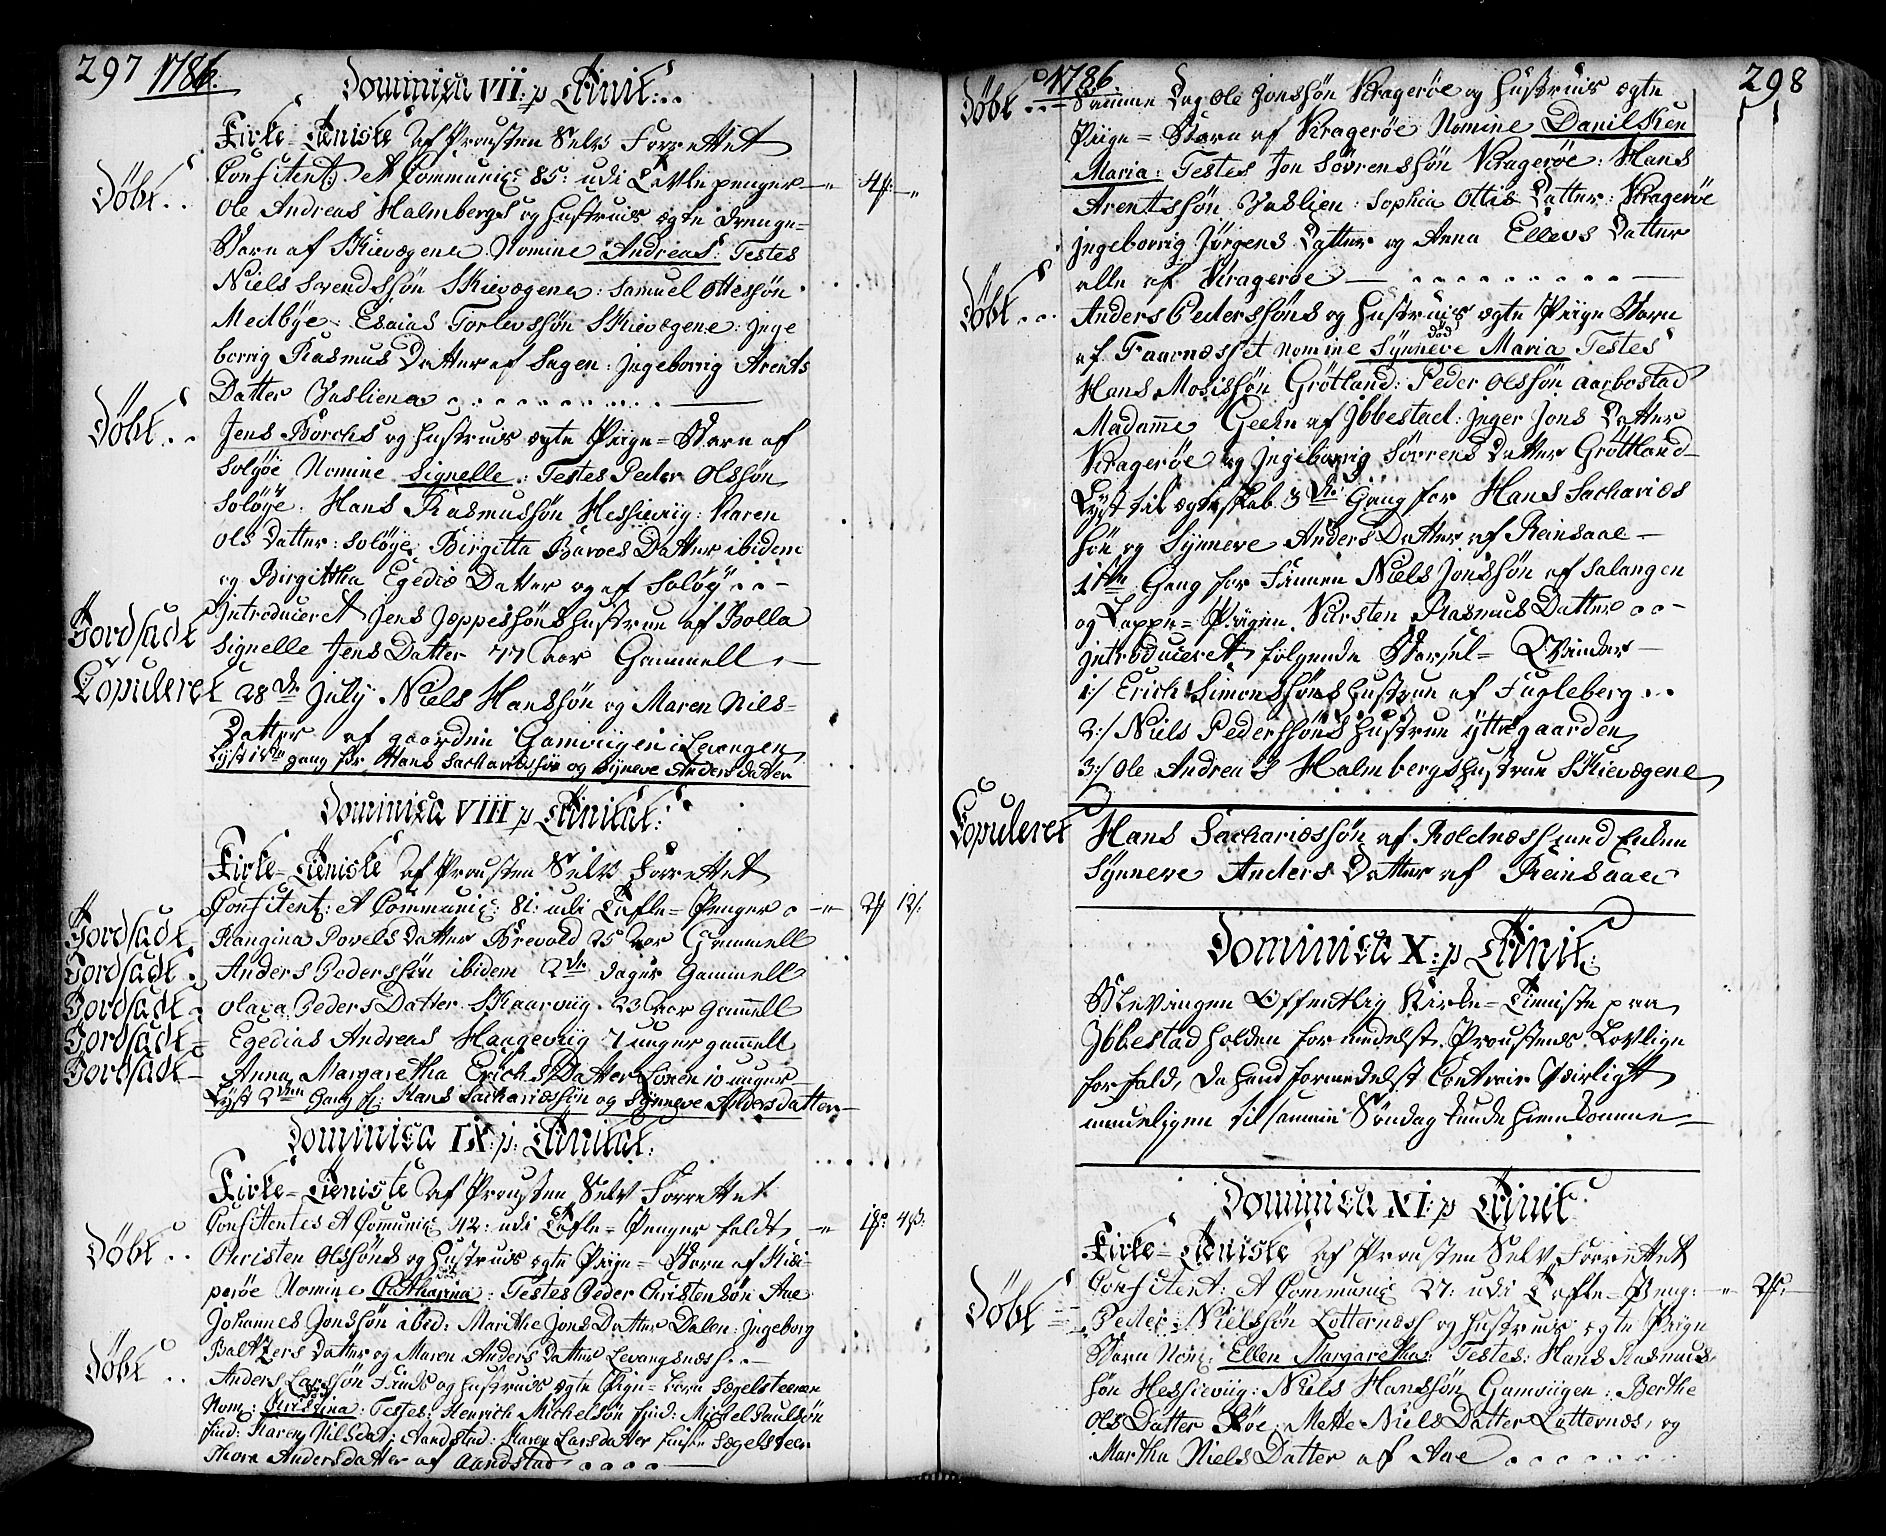 297 1786.
Dominica VII: p Trinit:
Kirke-Tieniste af Prousten Selv Forrettet
Confitent: et Communic: 85: udi Tavle penger 4
Døbt.. Ole Andreas Halmbergs og Hustrues ægte Drenge-
Barn af Skievægene Nomine Andreas: Testes
Niels Svendssøn Skievægene: Samuel Ottessøn
Medbye Esaias Torlevssøn Skievægene: Inge
borrig Rasmus Datter af Sagen: Ingeborrig Arents
Datter Vasliene
Døbt.. Jens Borchs og Hustrues ægte Piige-Barn af
Soløye Nomine Signelle: Testes Peder Olssøn
Soløye: Hans Rasmussøn Hessieviig: Karen
Ols Datter: Soløye: Birgitta Baroes Datter ibidem
og Birgittha Egedie Datter og af Soløy
Introduceret Jens Jæppessøns Hustrue af Bolla
Jordfæst Signelle Jens Datter 77 aar Gammell
Copuleret 28de July. Niels Hanssøn og Maren Nils-
Datter af gaarden Gamviigen i Levangen
Lyst 1ste gang for Hans Sachariæssøn og Synneve Anders datter
Dominica VIII p Trinitat:
Kirke-Tieniste af Prousten Selv Forrettet
Confitent: et Communic: 81: udi Tafle-Penger 2 12
Jordfæst. Rangina Povels Datter Brevold 25 aar Gammell
Jordfæst. Anders Pederssøn ibidem 2de dager Gammell
Jordfæst. Olava Peders Datter Skaarviig. 23 aar Gammell
Jordfæst Egedius Andreas Hangeviig 7 uger gammell
Jordfæst Anna Margaretha Erichs Datter Loren 10 uger
Lyst 2den Gang for Hans Sachariæssøn og Synneve Andersdatter
Dominica IX: p: Trinitat:
Kirke-Tieniste af Prousten Selv Forrettet
Confitentes et Communic: 42: udi Tafle-Penger faldt 1 4
Døbt.. Christen Olssøns og Hustrues ægte Piige-Barn af
perøe Nomine Catharina: Testes Peder Christensøn Aae
Johannes Jonssøn ibid: Marithe Jons Datter Dalen: Ingeborg
Baltzers datter og Maren Anders datter Levangsnæss
Døbt.. Anders Larssøn Finds og Hustrues ægte Piige-barn Sægelsteenen
død
Nom: Christina: Testes: Henrich Michelsøn find: Michel Paulsøn
find: Karen Nilsdat: Aandstad: Maren Larsdatter finsøn Sægelsteen
Thora Andersdatter af Aandstad
1786. 298
Døbt... Samme Dag Ole Jonssøn Kragerøe og Hustrues ægte
Piige-Barn af Kragerøe Nomine Danilken
Maria: Testes Jon Sørrenssøn Kragerøe: Hans
Arentssøn Vaslien: Sophia Ottis Datter: Kragerøe
Ingeborrig Jørgens Datter og Anna Ellevs Datter
alle af Kragerøe
Døbt... Anders Pederssøns og Hustrues ægte Piige Barn
død
af Faarnesset nomine Synneve Maria Testes
Hans Mosissøn Grøtland: Peder Olssøn Aarbostad
Madamme Geehn af Ibbestad: Inger Jons Datter
Kragerøe og Ingeborrig Sørrens Datter Grøttland
Lyst til ægteskab 3die Gang for Hans Sachariæs
søn og Synneve Anders Datter af Reinsaae
1ste Gang for Finnen Niels Jonssøn af Salangen
og Lappe-Piigen Kirsten Rasmus Datter
Introduceret følgende Barsel-Qvinder
1:/ Erich Simonssøns Hustrue af Fugleberg
2:/ Niels Pederssøns Hustrue ytregaarden
3:/ Ole Andreas Halmbergs Hustrue Skievægene
Copuleret Hans Sachariæssøn af Roldnæss med Enken
Synneve Anders Datter af Reinsaae
Dominica X: p Trinit:
Blev ingen Offentlig Kirke-Tieniste paa
Ibbestad holden formedelst Proustens Lovlige
forfald, da hand formedelst Contrair Veirligt
umueligen til samme Søndag kunde hiemkomme
Dominica XI: p Trinit:
Kirke-Tieniste af Prousten Selv Forrettet
Confitent: et Communic 27: udi Tafle-Peng: 2
Døbt Peder Nielssøn Lotternæss og Hustrues ægte Piige
Barn Nom: Ellen Margaretha: Testes: Hans Rasmus
søn Hessieviig: Niels Hanssøn Gamviigen: Berthe
Ols Datter Røe: Mette Niels Datter Lotternæs, og
Martha Niels Datter af Aae